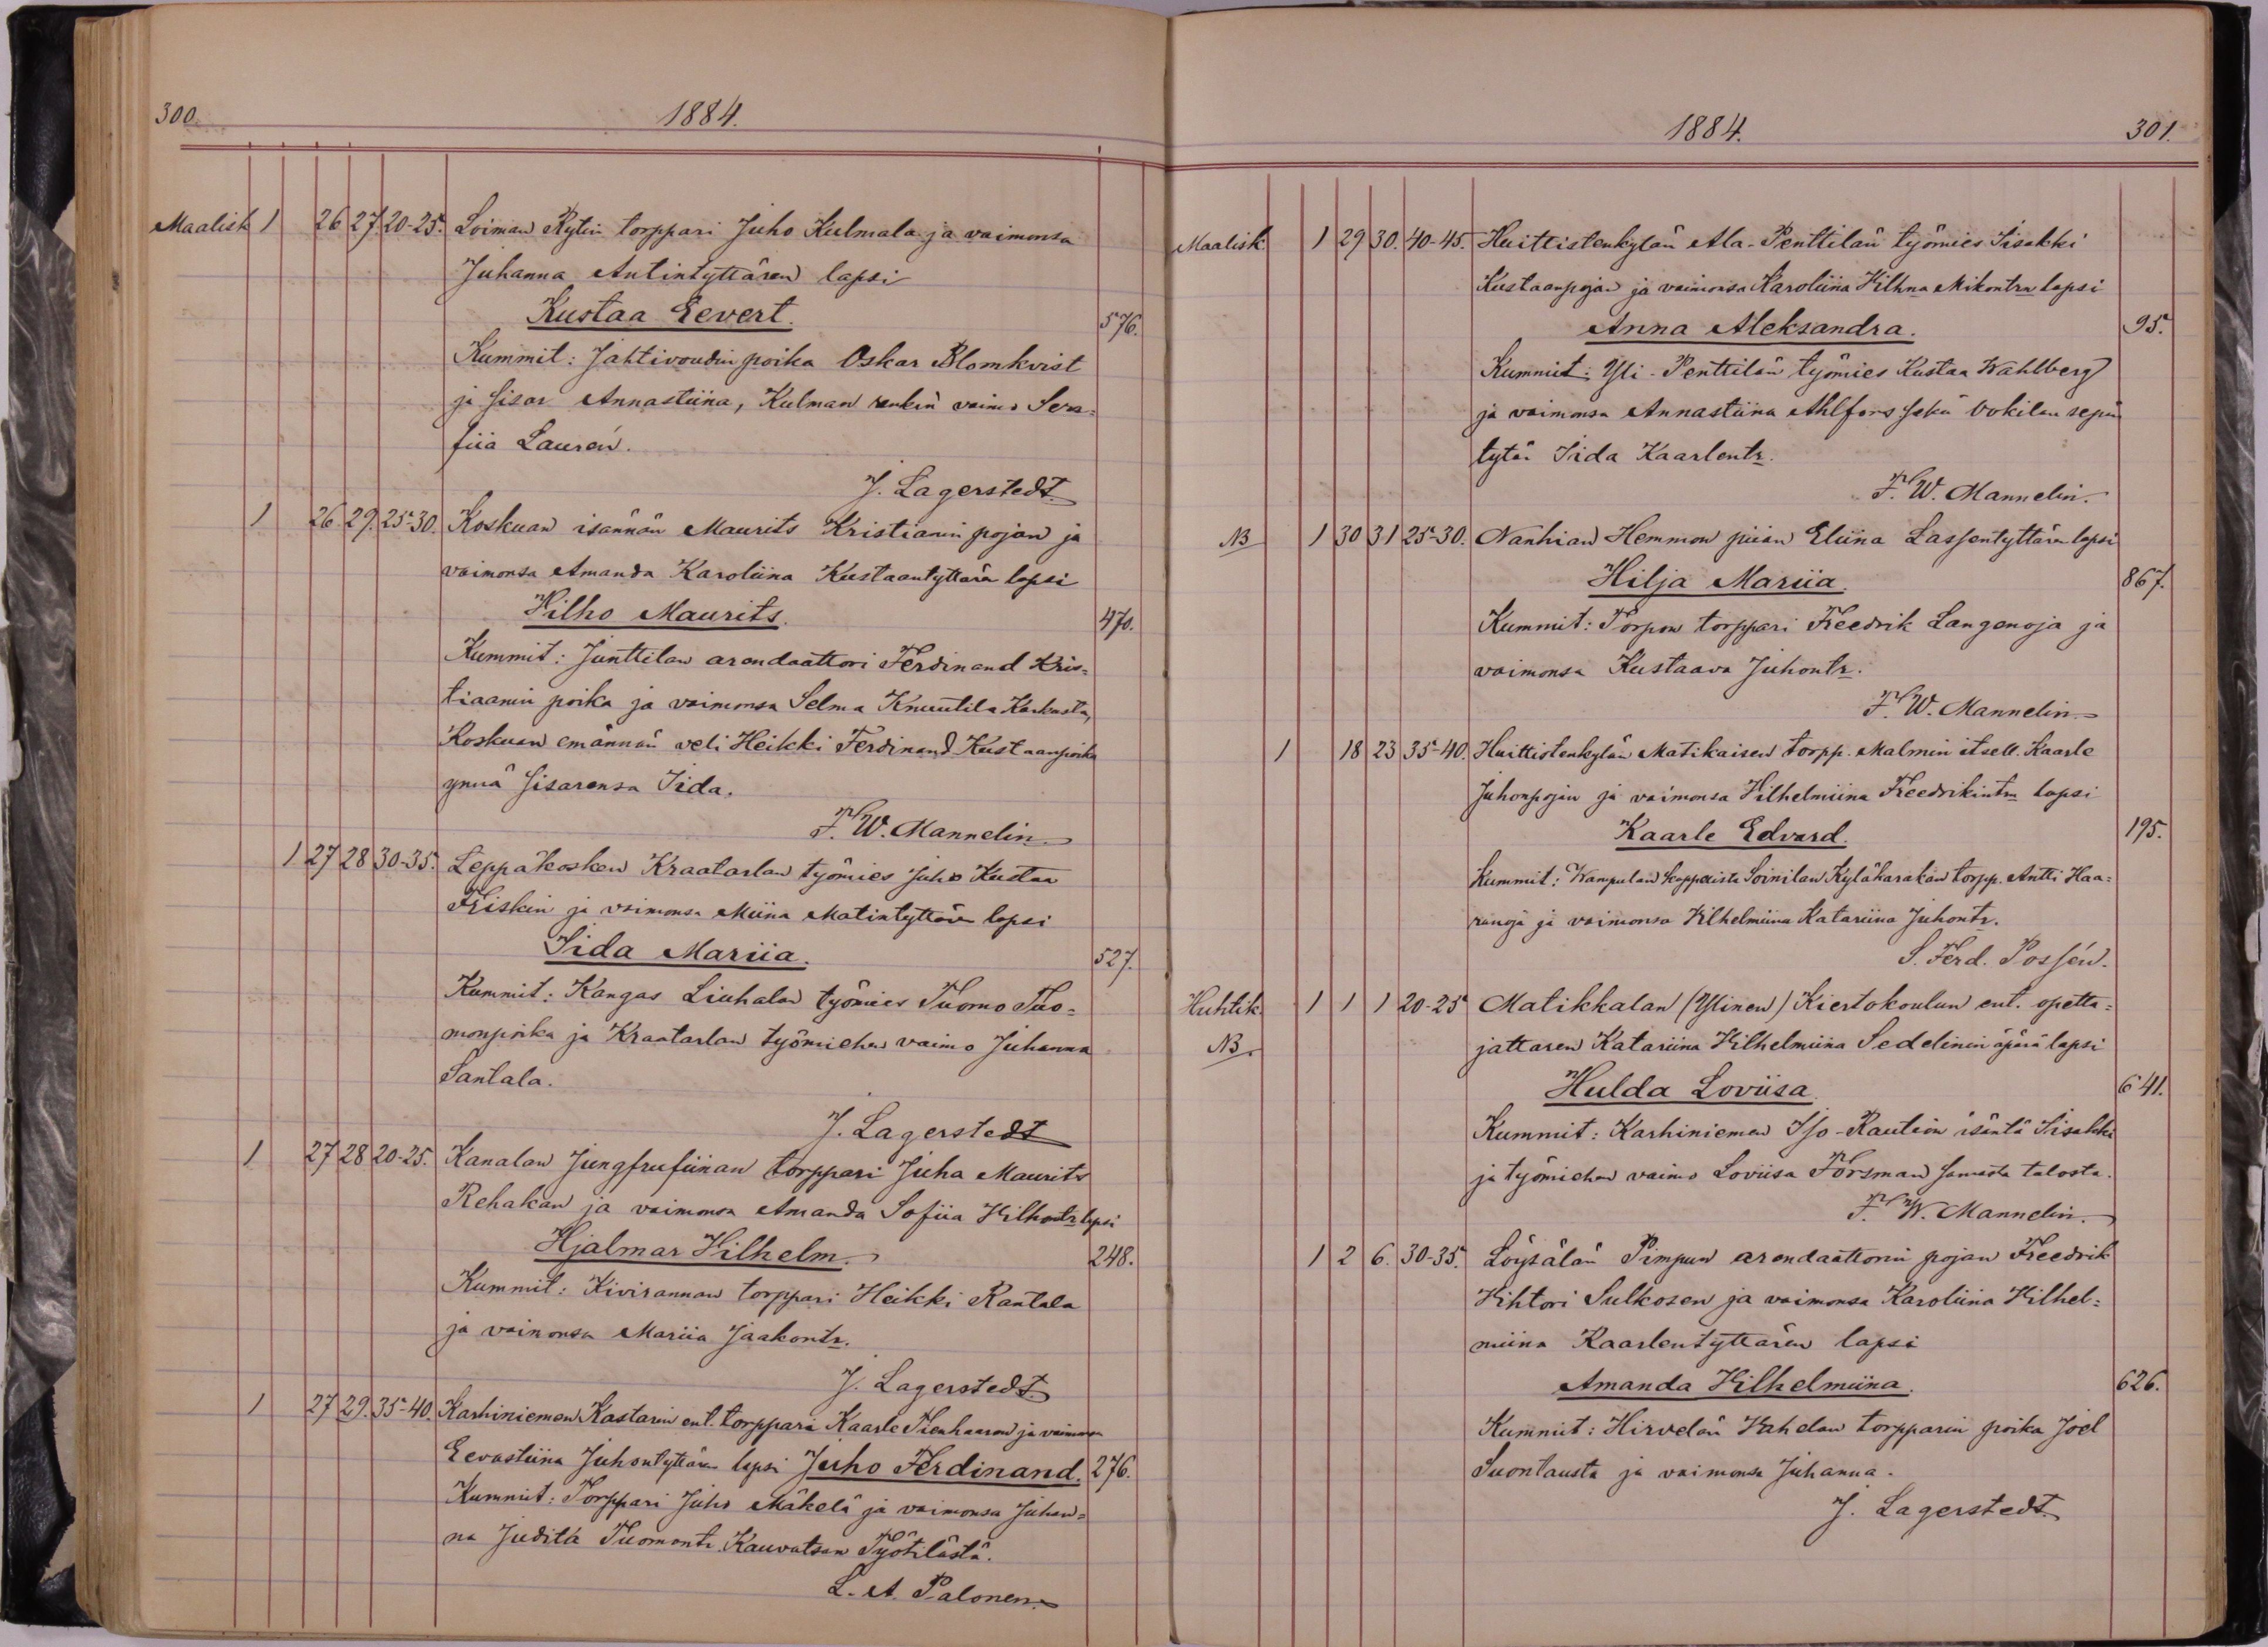 300. 1884.
Maalisk 1 26 27. 20-25. Loiman Rytin torppari Juho Kulmala ja vaimonsa
Juhanna Antintyttären lapsi
Kustaa Eevert. 576.
Kummit: Jahtivoudin poika Oskar Blomkvist
ja sisar Annastiina, Kulman renkin vaimo Sera=
fiia Laurén.
J. Lagerstedt.
1 26. 29. 25-30. Koskuan isännän Maurits Kristianin pojan ja
vaimonsa Amanda Karoliina Kustaantyttären lapsi
Vilho Maurits. 470.
Kummit: Junttilan arendaattori Ferdinand Kris=
tiaanin poika ja vaimonsa Selma Knuutila Karkusta,
Koskuan emännän veli Heikki Ferdinand Kustaanpoika
ynnä sisarensa Iida.
F. W. Mannelin.
1 27 28 30-35. Leppäkosken Kraatarlan työmies Juho Kustaa
Friskin ja vaimonsa Miina Matintyttären lapsi
Iida Mariia. 527.
Kummit: Kangas Liuhalan työmies Tuomo Tuo=
monpoika ja Kraatarlan työmiehen vaimo Juhanna
Santala.
J. Lagerstedt
1 27 28 20-25. Kanalan Jungfrufiinan torppari Juha Maurits
Rehakan ja vaimonsa Amanda Sofiia Vilhontr lapsi
Hjalmar Vilhelm. 248.
Kummit: Kivirannan torppari Heikki Rantala
ja vaimonsa Mariia Jaakontr.
J. Lagerstedt.
1 27 29. 35-40. Karhiniemen Kastarin ent. torppari Kaarle Tienhaaran ja vaimonsa
Eevastiina Juhontyttären lapsi Juho Ferdinand. 276.
Kummit: Torppari Juho Mäkelä ja vaimonsa Juhan=
na Judita Tuomontr. Kauvatsan Työtilästä.
L. A. Palonen.
1884. 301.
Maalisk. 1 29 30. 40-45. Huittistenkylän Ala-Penttilän työmies Iisakki
Kustaanpojan ja vaimonsa Karoliina Vilhna Mikontrn lapsi
Anna Aleksandra. 95.
Kummit: Yli-Penttilän työmies Kustaa Wahlberg
ja vaimonsa Annastiina Ahlfors sekä Vokilan sepän
tytär Iida Kaarlentr.
F. W. Mannelin.
NB 1 30 31 25-30. Nanhian Hemmon piian Eliina Lassentyttären lapsi
Hilja Mariia. 867.
Kummit: Torpon torppari Freedrik Langenoja ja
vaimonsa Kustaava Juhontr.
F. W. Mannelin.
1 18 23 35-40. Huittistenkylän Matikaisen torpp. Malmin itsell. Kaarle
Juhonpojan ja vaimonsa Vilhelmiina Freedrikintrn lapsi
Kaarle Edvard. 195.
Kummit: Wampulan kappelista Soinilan Kyläkarakan torpp. Antti Haa=
ranoja ja vaimonsa Vilhelmiina Katariina Juhontr.
S. Ferd. Possén.
Huhtik. 1 1 1 20-25 Matikkalan (Ylinen) Kiertokoulun ent. opetta=
NB. jattaren Katariina Vilhelmiina Sedelinin äpärä lapsi
Hulda Loviisa. 641.
Kummit: Karhiniemen Iso-Raution isäntä Iisakki
ja työmiehen vaimo Loviisa Forsman samasta talosta.
F. W. Mannelin.
1 2 6. 30-35. Löysälän Pimpun arendaattorin pojan Freedrik
Vihtori Sulkosen ja vaimonsa Karoliina Vilhel=
miina Kaarlentyttären lapsi
Amanda Vilhelmiina. 626.
Kummit: Hirvelän Vahelan torpparin poika Joel
Suontausta ja vaimonsa Juhanna.
J. Lagerstedt.